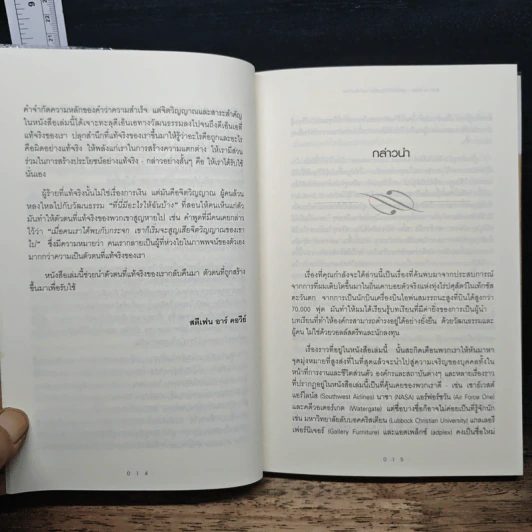 คำจำกัดความหลักของคำว่าความสำเร็จ แต่จิตวิญญาณและสาระสำคัญ
ในหนังสือเล่มนี้ได้เจาะทะลุดีเอ็นเอทางวัฒนธรรมลงไปจนถึงดีเอ็นเอที่
แท้จริงของเรา ปลุกสำนึกที่แท้จริงของเราขึ้นมาให้รู้ว่าอะไรคือถูกและอะไร
คือผิดอย่างแท้จริง ให้พลังแก่เราในการสร้างความแตกต่าง ให้เรามีส่วน
ร่วมในการสร้างประโยชน์อย่างแท้จริง - กล่าวอย่างสั้นๆ คือ ให้เราได้รับใช้
นั่นเอง
ผู้ร้ายที่แท้จริงนั้นไม่ใช่เรื่องการเงิน แต่มันคือจิตวิญญาณ ผู้คนล้วน
หลงใหลไปกับวัฒนธรรม "ที่นี่มีอะไรให้ฉันบ้าง" ที่สอนให้คนเห็นแก่ตัว
มันทำให้ตัวตนที่แท้จริงของพวกเขาสูญหายไป เช่น คำพูดที่มีคนเคยกล่าว
ไว้ว่า "เมื่อคนเราได้พบกับกระจก เขาก็เริ่มจะสูญเสียจิตวิญญาณของเขา
ไป" ซึ่งมีความหมายว่า คนเรากลายเป็นผู้ที่ห่วงใยในภาพพจน์ของตัวเอง
มากกว่าความเป็นตัวตนที่แท้จริงของเรา
หนังสือเล่มนี้ช่วยนำตัวตนที่แท้จริงของเรากลับคืนมา ตัวตนที่ถูกสร้าง
ขึ้นมาเพื่อรับใช้
สตีเฟน อาร์ คอวีย์
014
กล่าวนำ
เรื่องที่คุณกำลังจะได้อ่านนี้เป็นเรื่องที่ค้นพบมาจากประสบการณ์
จากการที่ผมเติบโตขึ้นมาในถิ่นคาวบอยตัวจริงแห่งทุ่งไร่ปศุสัตว์ในเท็กซัส
ตะวันตก จากการเป็นนักบินเครื่องบินไอพ่นสมรรถนะสูงที่บินได้สูงกว่า
70,000 ฟุต มันทำให้ผมได้เรียนรู้บทเรียนที่มีค่ายิ่งของการเป็นผู้นำ -
บทเรียนที่ทำให้องค์กรสามารถดำรงอยู่ได้อย่างยั่งยืน ด้วยวัฒนธรรมและ
ผู้คน ไม่ใช่ด้วยวอลล์สตรีทและนักลงทุน
เรื่องราวที่อยู่ในหนังสือเล่มนี้ - นั้นสะกิดเตือนพวกเราให้หันมาหา
จุดมุ่งหมายที่สูงส่งที่ในที่สุดแล้วจะนำไปสู่ความเจริญของบุคคลทั้งใน
หน้าที่การงานและชีวิตส่วนตัว องค์กรและสถาบันต่างๆ และหลายเรื่องราว
ที่ปรากฏอยู่ในหนังสือเล่มนี้เป็นที่คุ้นเคยของพวกเราดี - เช่น เซาธ์เวสต์
แอร์ไลน์ส (Southwest Airlines) นาซา (NASA) แอร์ฟอร์ซวัน (Air Force One)
และคดีวอเตอร์เกต (Watergate) แต่ชื่อบางชื่อก็อาจไม่ค่อยเป็นที่รู้จักนัก
เช่น มหาวิทยาลัยลับบอคคริสเตียน (Lubbock Christian University) แกลเลอรี
เฟอร์นิเจอร์ (Gallery Furniture) และแอดเพล็กซ์ (adplex) คงเป็นชื่อใหม่
015